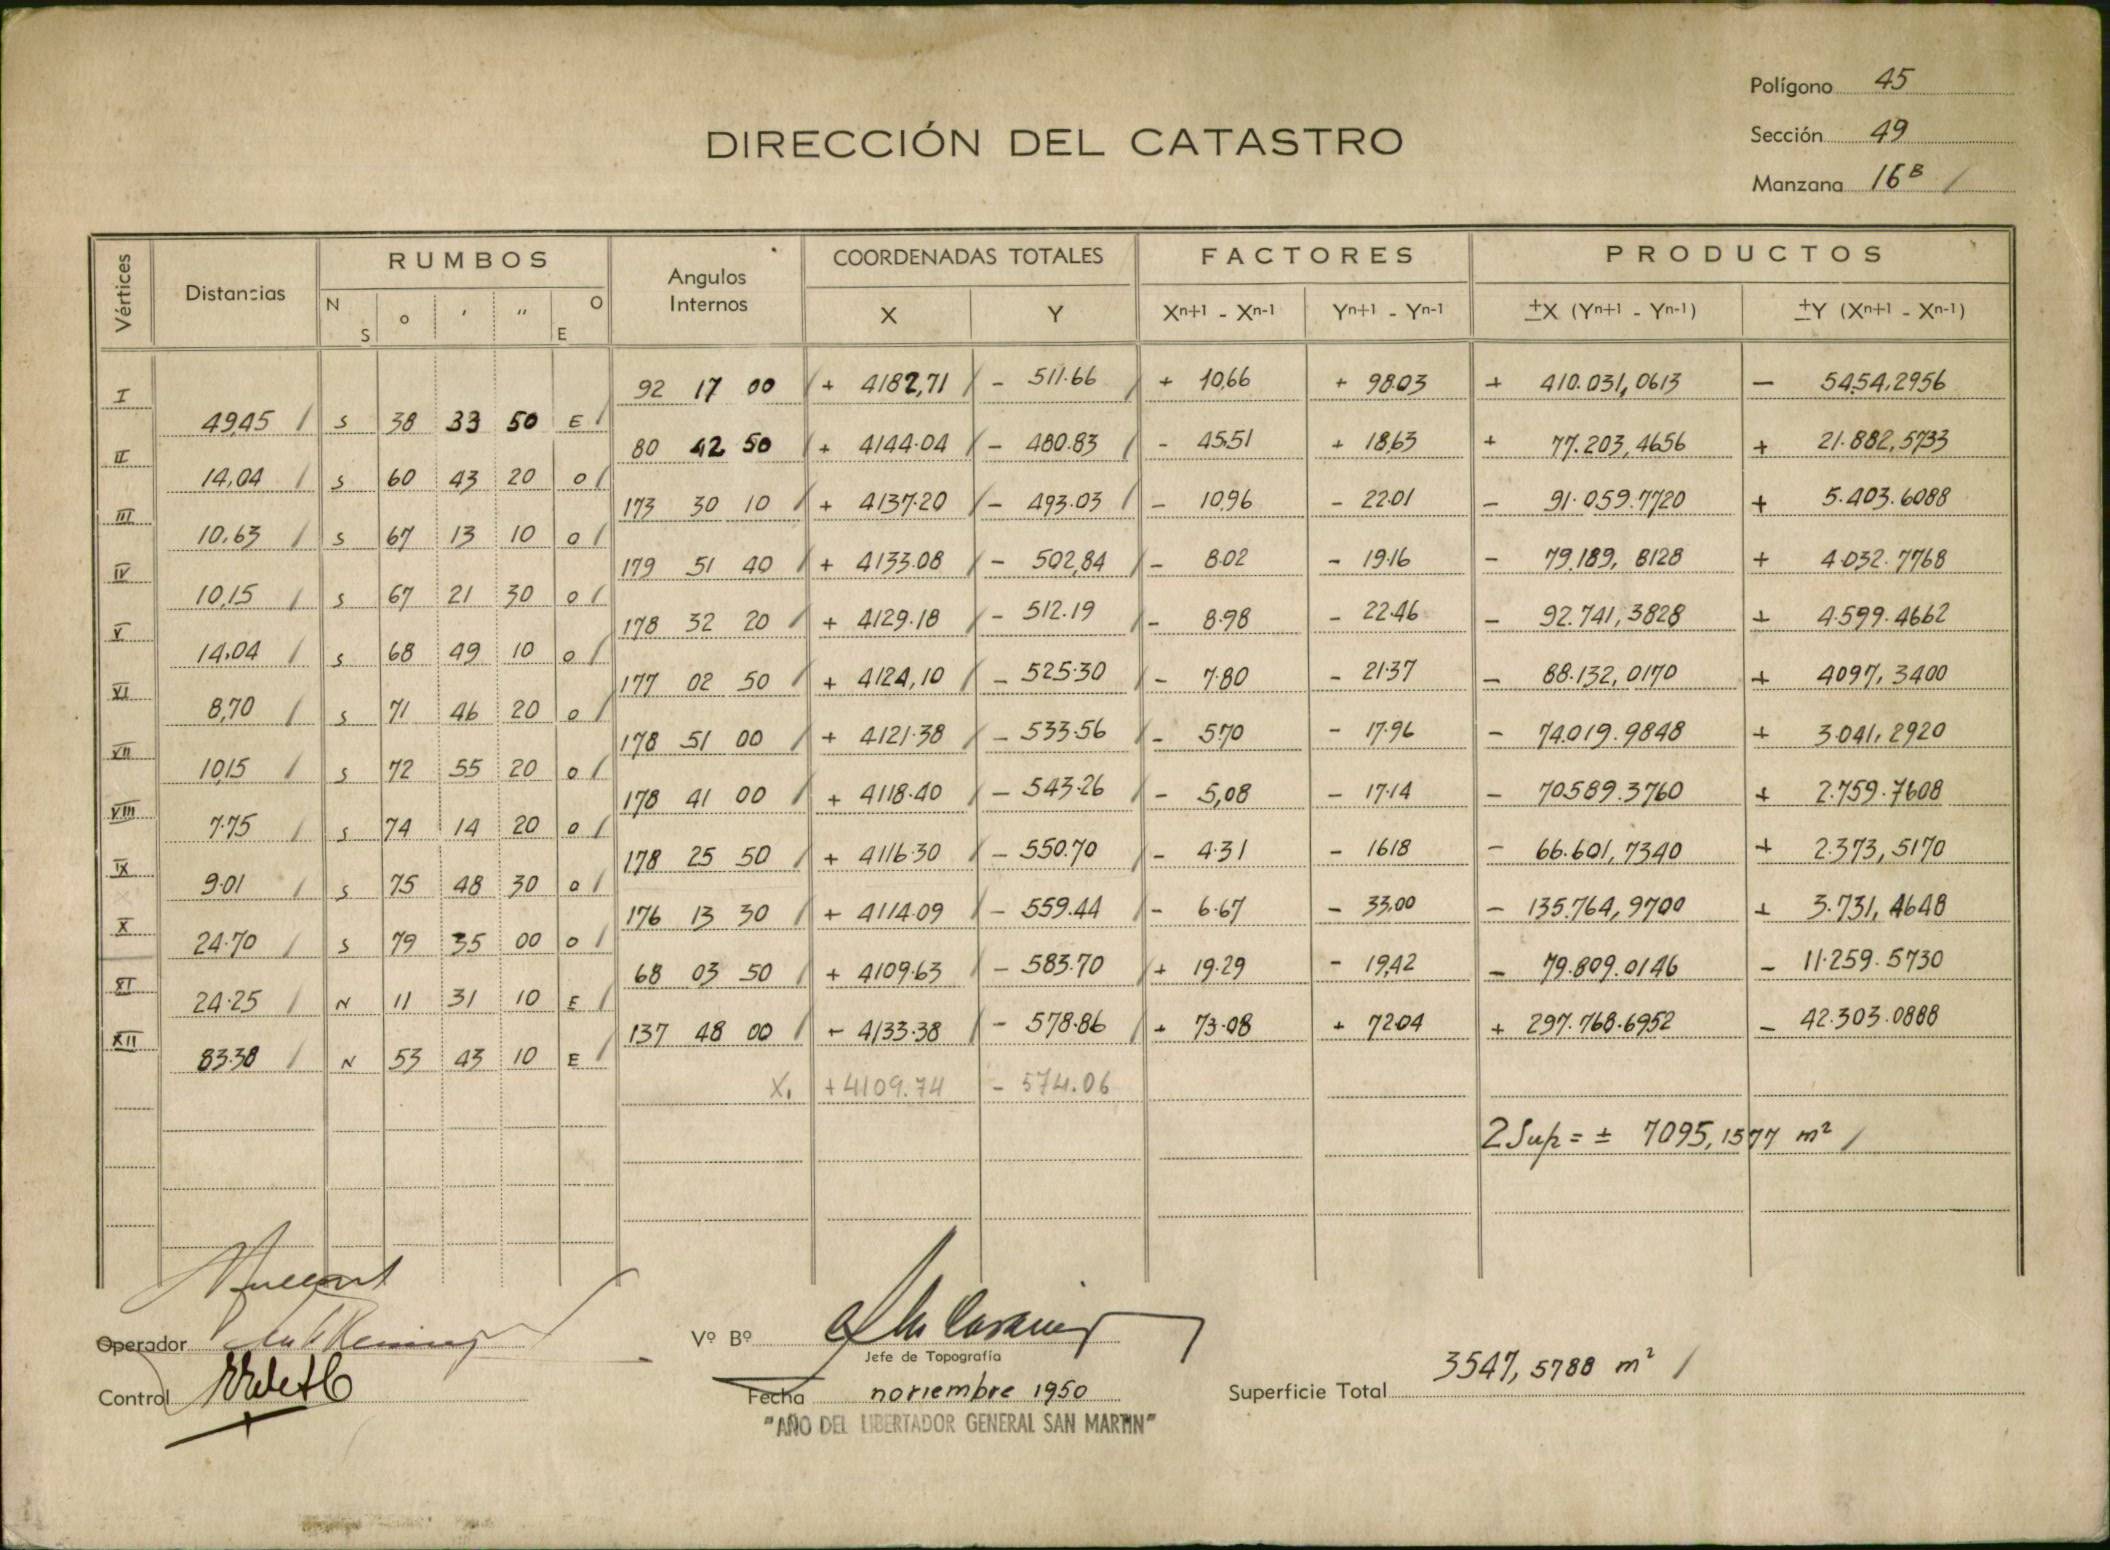 Polígono 45
DIRECCIÓN DEL CATASTRO
Sección 49
Manzana 16 B /
Vértices Distancias RUMBOS Angulos Internos COORDENADAS TOTALES FACTORES PRODUCTOS
N S o ' " O E X Y Xn+1 - Xn-1 Yn+1 - Yn-1 ±X (Yn+1 - Yn-1) ±Y (Xn+1 - Xn-1)
I 92 17 00 / + 4182,71 / - 511.66 / + 10,66 + 98.03 + 410.031,0613 - 5454,2956
49,45 / S 38 33 50 E /
II 80 42 50 / + 4144.04 / - 480.83 / - 45.51 + 18,63 + 77.203,4656 + 21.882,5733
14,04 / S 60 43 20 O /
III 173 30 10 / + 4137.20 / - 493.03 / - 10,96 - 22.01 - 91.059.7720 + 5.403.6088
10,63 / S 67 13 10 O /
IV 179 51 40 / + 4133.08 / - 502,84 / - 8.02 - 19.16 - 79.189, 8128 + 4.032.7768
10,15 / S 67 21 30 O /
V 178 32 20 / + 4129.18 / - 512.19 / - 8.98 - 22.46 - 92.741,3828 + 4.599.4662
14.04 / S 68 49 10 O /
VI 177 02 50 / + 4124,10 / - 525.30 / - 7.80 - 21.37 - 88.132,0170 + 4097,3400
8,70 / S 71 46 20 O /
VII 178 51 00 / + 4121.38 / - 533.56 / - 5.70 - 17.96 - 74.019.9848 + 3.041,2920
10,15 / S 72 55 20 O /
VIII 178 41 00 / + 4118.40 / - 543.26 / - 5,08 - 17.14 - 70.589.3760 + 2.759.7608
7.75 / S 74 14 20 O /
IX 178 25 50 / + 4116.30 / - 550.70 / - 4.31 - 16.18 - 66.601,7340 + 2.373,5170
9.01 / S 75 48 30 O /
X 176 13 30 / + 4114.09 / - 559.44 / - 6.67 - 33,00 - 135.764,9700 + 3.731,4648
24.70 / S 79 35 00 O /
XI 68 03 50 / + 4109.63 / - 583.70 / + 19.29 - 19,42 - 79.809.0146 - 11.259.5730
24.25 / N 11 31 10 E /
XII 137 48 00 / + 4133.38 / - 578.86 / + 73.08 + 72.04 + 297.768.6952 - 42.303.0888
83.38 / N 53 43 10 E /
X1 +4109.74 - 574.06
2 Sup = ± 7095,1577 m² /
Operador
Vº Bº
Jefe de Topografía
Control
Fecha noviembre 1950
Superficie Total 3547,5788 m² /
"AÑO DEL LIBERTADOR GENERAL SAN MARTIN"